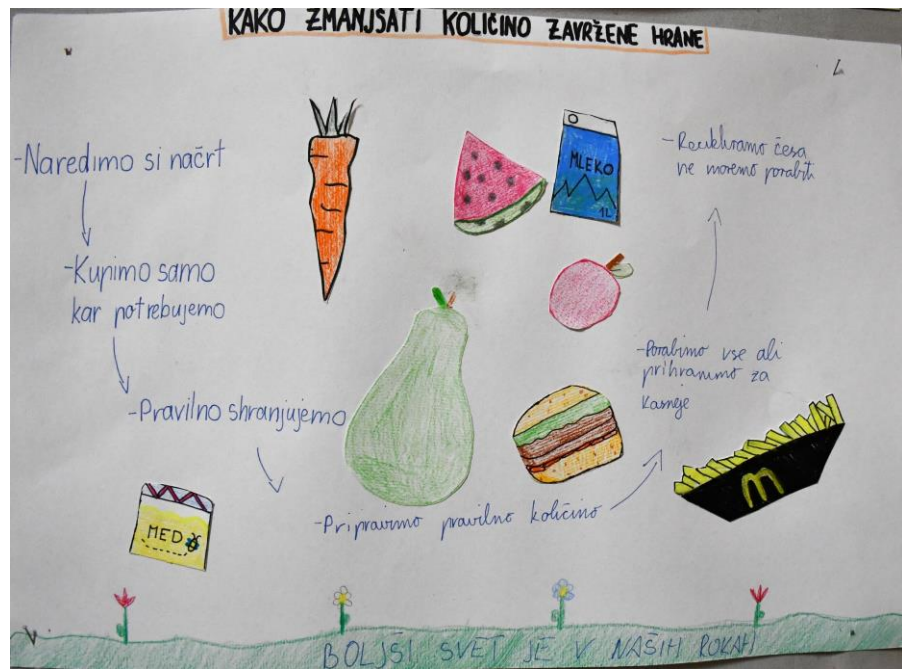 KAKO ZMANJŠATI KOLIČINO ZAVRŽENE HRANE
-Naredimo si načrt
-Kupimo samo
kar potrebujemo
-Pravilno shranjujemo
-Pripravimo pravilno količino
-Porabimo vse ali
prihranimo za
kasneje
-Recikliramo česa
ne moremo porabiti
MLEKO
1L
MED
M
BOLJŠI SVET JE V NAŠIH ROKAH